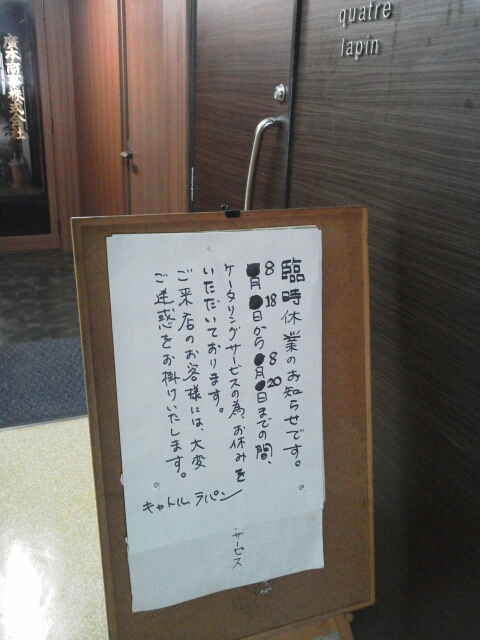 quatre
lapin
廣本商事株式会社
臨時休業のお知らせです。
8 18 8 20
月 日から 月 日までの間、
ケータリングサービスの為、お休みを
いただいております。
ご来店のお客様には、大変
ご迷惑をお掛けいたします。
キャトル ラパン
サービス